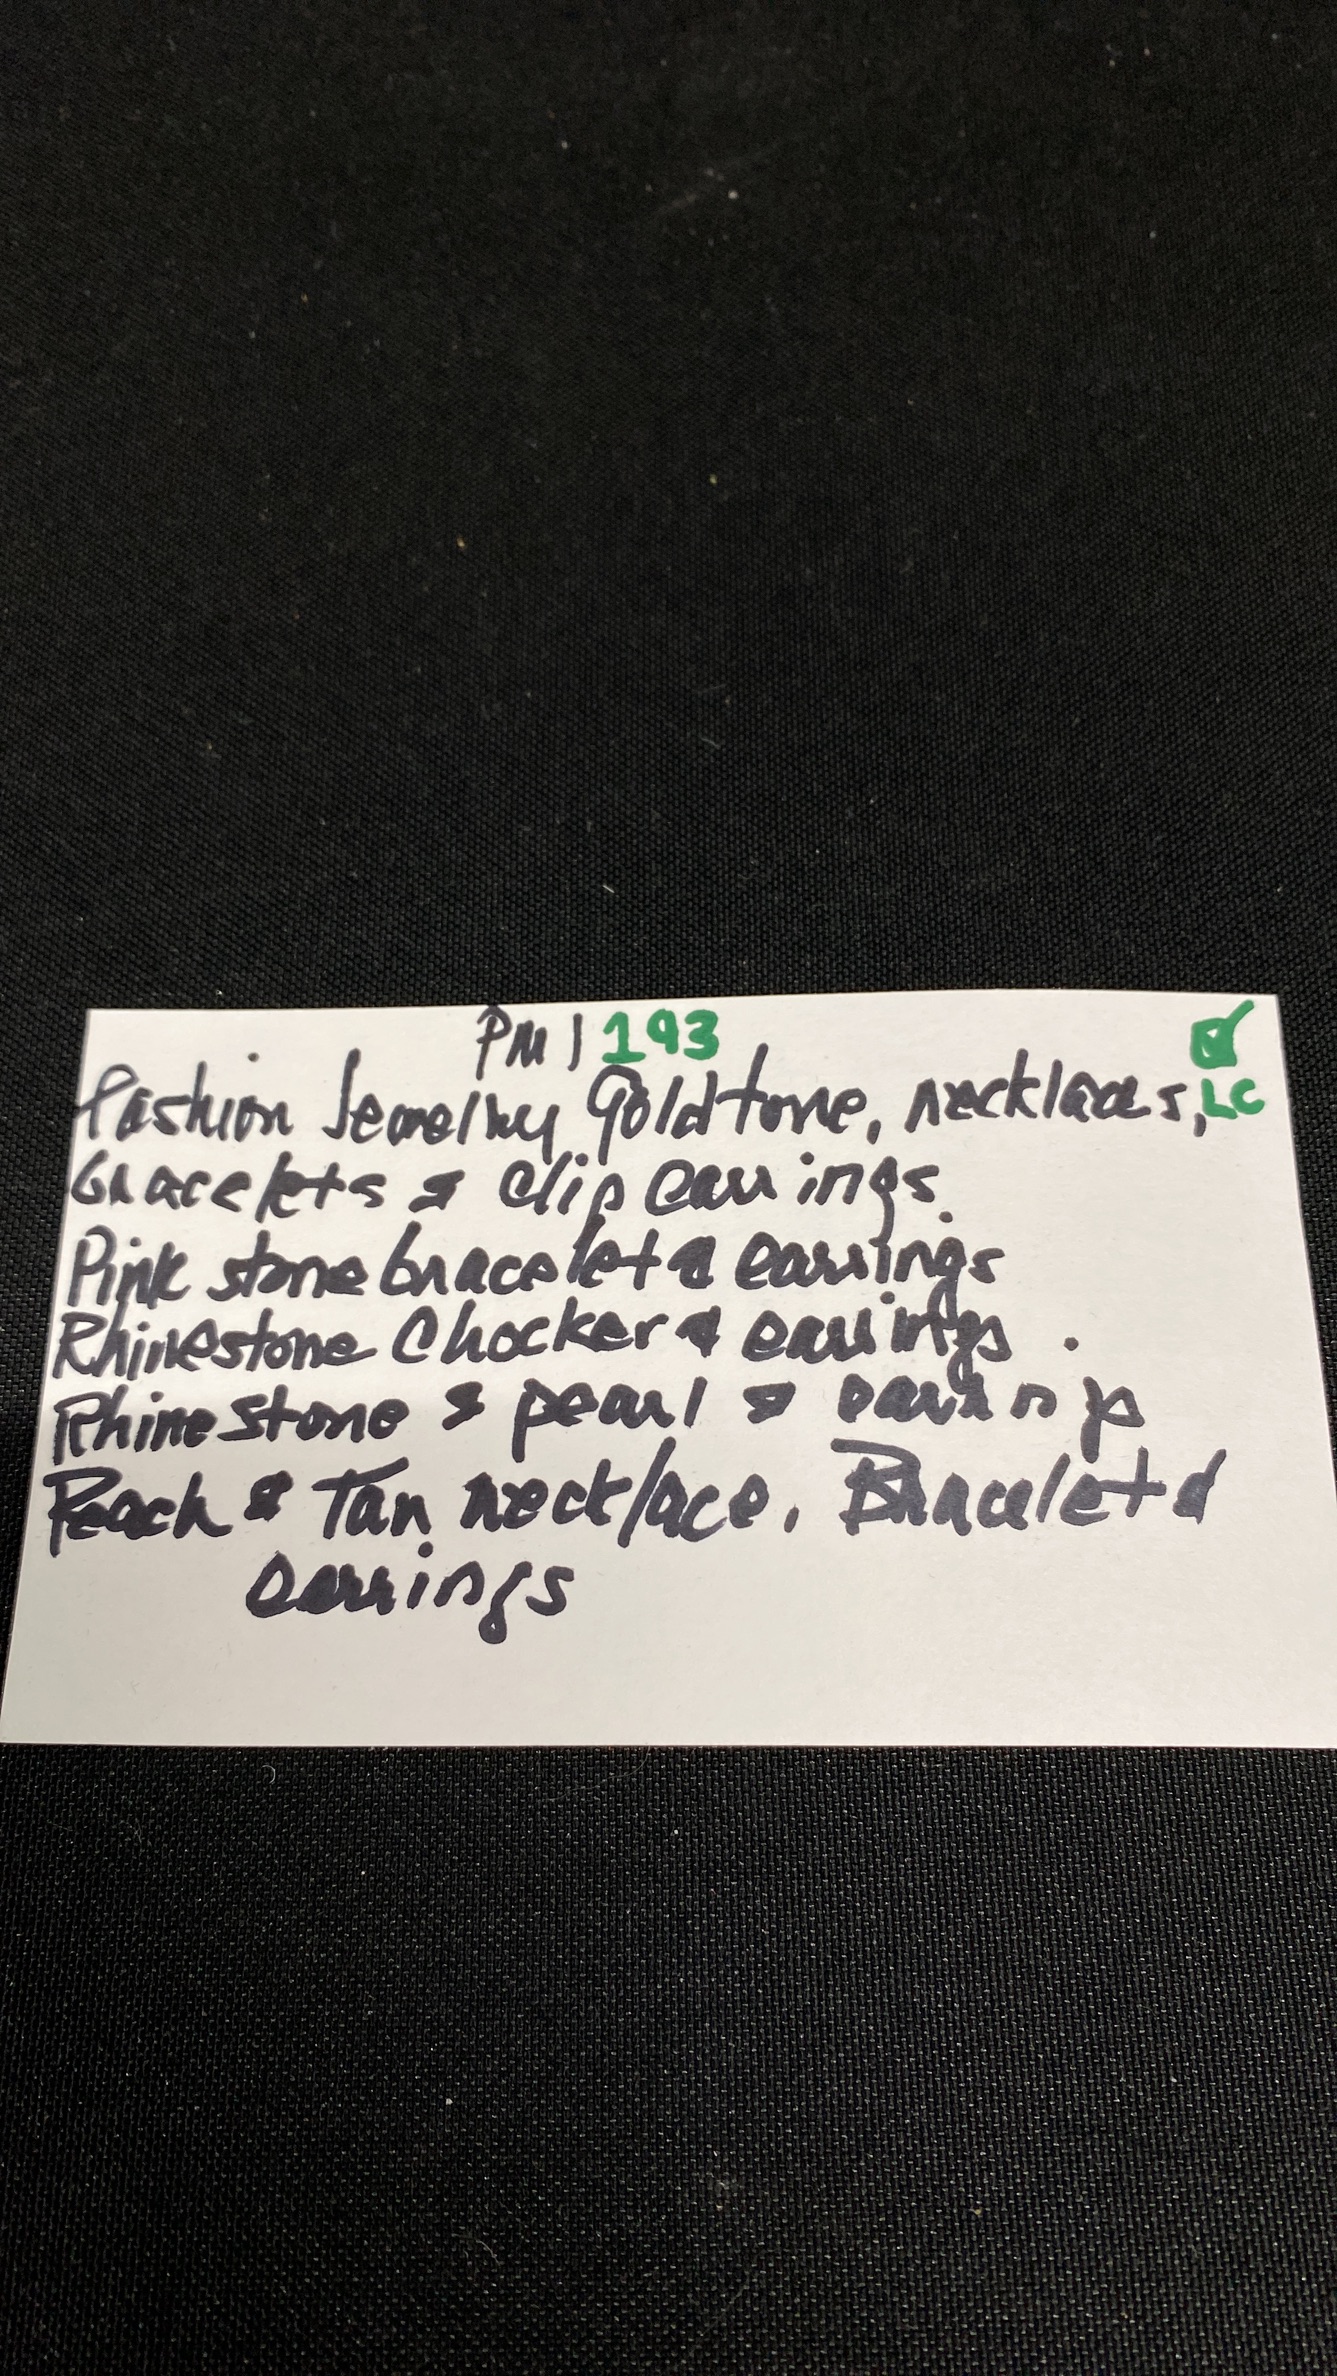 PM | 193
Fashion Jewelry Goldtone, necklaces, LC
bracelets & clip earrings.
Pink stone bracelet & earrings
Rhinestone Chocker & earrings .
Rhinestone & pearl & earrings
Peach & Tan necklace, Bracelet &
earrings